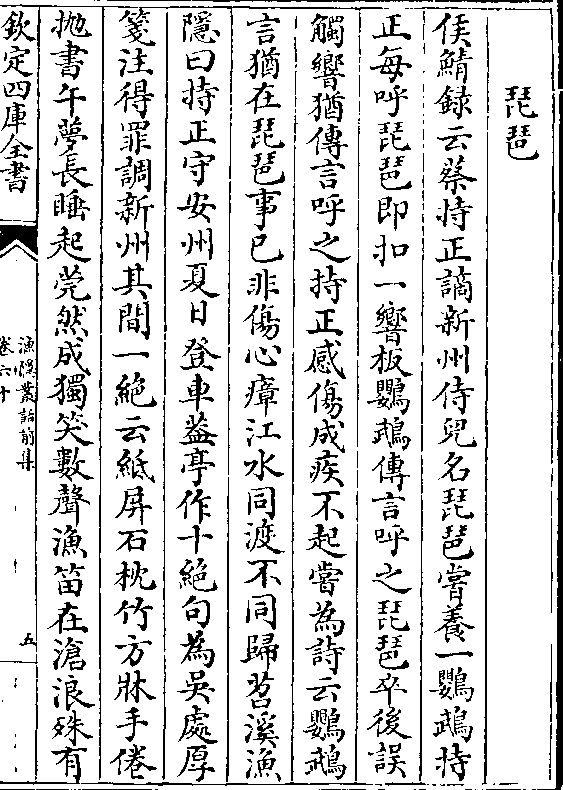 琵琶
侯鯖録云蔡持正謫新州侍兒名琵琶嘗養一鸚鵡持
正每呼琵琶即扣一響板鸚鵡傳言呼之琵琶卒後誤
觸響猶傳言呼之持正感傷成疾不起嘗為詩云鸚鵡
言猶在琵琶事已非傷心瘴江水同渡不同歸苕溪漁
隱曰持正守安州夏日登車葢亭作十絕句為吳處厚
箋注得罪調新州其間一絕云紙屏石枕竹方牀手倦
抛書午夢長睡起莞然成獨笑數聲漁笛在滄浪殊有
欽定四庫全書
漁隱叢話前集
卷六十
五